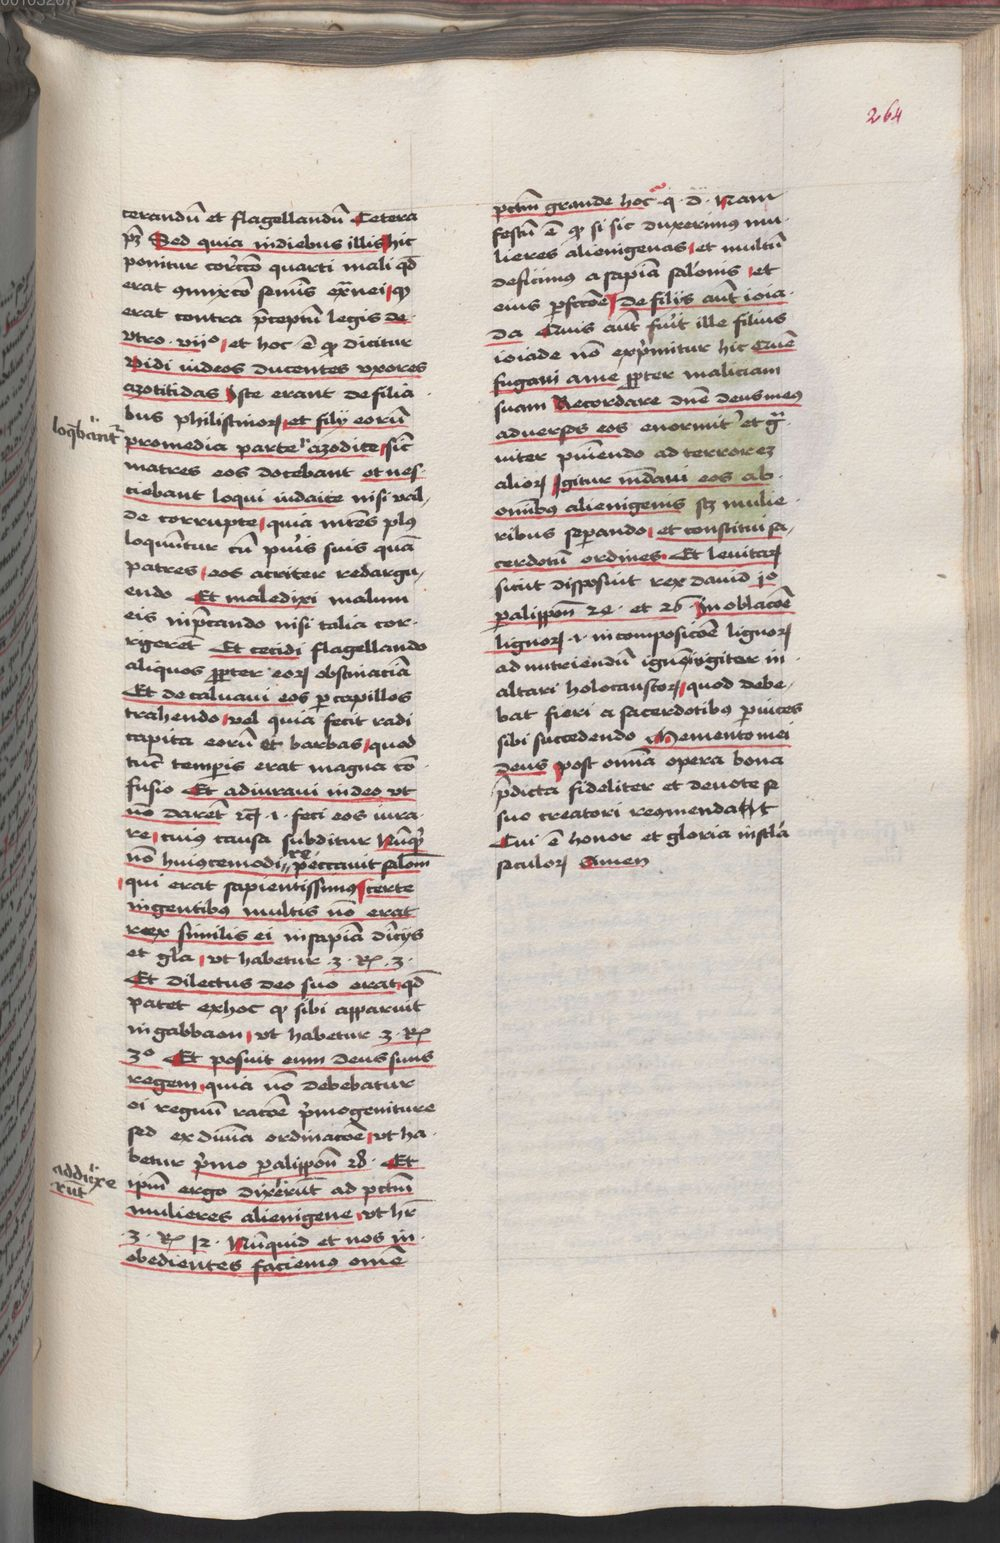 264
terandū et flagellandū Cetera
pꝫ Sed quia indiebus illis hic
ponitur correctō quarti mali qd̄
erat ꝯmixtō seminis exͣnei qꝫ
erat contra p̄ceptū legis de
vtro. vijº et hoc ē qꝫ dicitur
Vidi iudeos ducentes vxores
azotitidas Iste erant de filia
bus philistinoꝝ et filij eorū
promedia parte azodite sic̄
matres eos docebant et nes
ciebant loqui iudaice nisi val
de corrupte quia mr̄es plꝰ
loquūtur cū puīs suis quā
patres eos acriter redargu
endo Et maledixi malum
eis inp̄cando nisi talia cor
rigerēt Et cecidi flagellando
aliquos ꝓpter eoꝝ obstinaciā
Et decaluaui eos ꝑ capillos
trahendo vel quia fecit radi
capita eorū et barbas quod
tūc temꝑis erat magna cō
fusio Et adiuraui in deo vt
nō darēt rꝯ̄ .i. feci eos iura
re cuius causa subditur Nūqͥd
nō huiuscemodi re peccauit salom̄
qui erat sapientissimus certe
ingentibꝰ multis nō erat
rex similis ei insapiā diuīcijs
et gl̄a vt habetur .3. Rͫ .3.
Et dilectus deo suo erat qd̄
patet exhoc qꝫ sibi apparuit
in gabbaon vt habetur 3 Rͫ
3º Et posuit eum deus suus
regem quia nō debebatur
ei regnū racōe p̄mogeniture
sed ex diuīa ordinacōe vt ha
betur p̄mo paralippon̄ 28. Et
ipm̄ ergo duxerūt ad pctm̄
mulieres alienigene vt hr̄
.3. Rͫ 12. Nūquid et nos in
obedientes faciemꝰ omē
loqͤbant̄
adduxe
rūt
pctm̄ grande hoc q. d. Nam
festū ē qꝫ si sic duxerimus mu
lieres alienigenas et multū
deficimus a sapīa salōnis et
eius ꝑfectōe De filijs aūt ioia
da Quis aūt fuīt ille filius
ioiade nō exp̄mitur hic Quē
fugaui a me ꝓpter maliciam
suam Recordare dn̄e deus meus
aduersꝰ eos enormit̄ et gͣ
uiter puniendo ad terrorez
alioꝝ Igitur mūdaui eos ab
omībꝰ alienigenis scꝫ mulie
ribus seꝑando et constitui sa
cerdotū ordines Et leuitaꝝ
sicut disposuit rex dauid jº
paralippon̄ 24. et 26. In oblacōe
lignoꝝ .i. in composicōe lignoꝝ
ad nutriendū ignē iugiter in
altari holocaustoꝝ quod debe
bat fieri a sacerdotibꝰ ꝑ uices
sibi succedendo Memento mei
deus post omīa opera bona
p̄dicta fideliter et deuote se
suo creatori recomendat
Cui ē honor et gloria in sc̄la
seculoꝝ Amen